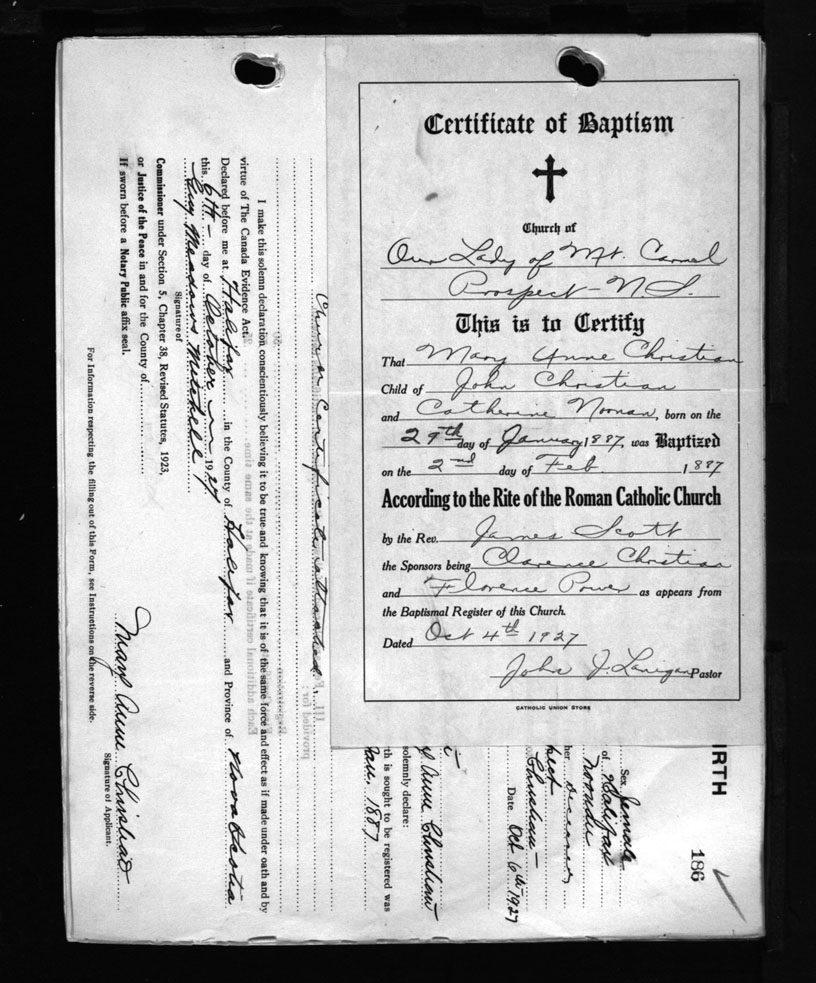 Certificate of Baptism
Church of
Our Lady of Mt. Carmel
Prospect - N.S.
This is to Certify
That Mary Anne Christian
Child of John Christian
and Catherine Noonan, born on the
29th day of January 1887, was Baptized
on the 2nd day of Feb. 1887
According to the Rite of the Roman Catholic Church
by the Rev. James Scott
the Sponsors being Clarence Christian
and Florence Power as appears from
the Baptismal Register of this Church.
Dated Oct 4th 1927
John J. Lanegan Pastor
CATHOLIC UNION STORE
IRTH
186
Sex female
of Halifax
her
Date Oct 6th 1927
solemnly declare:
Anne Christian
th is sought to be registered was
Jan. 1887
Church Certificate attached.
I make this solemn declaration conscientiously believing it to be true and knowing that it is of the same force and effect as if made under oath and by
virtue of The Canada Evidence Act.
Declared before me at Halifax in the County of Halifax and Province of Nova Scotia
this 6th day of October 1927
Guy Meadows Mitchell
Signature of
Commissioner under Section 5, Chapter 38, Revised Statutes, 1923,
or Justice of the Peace in and for the County of
If sworn before a Notary Public affix seal.
Mary Anne Christian
Signature of Applicant.
For Information respecting the filling out of this Form, see Instructions on the reverse side.